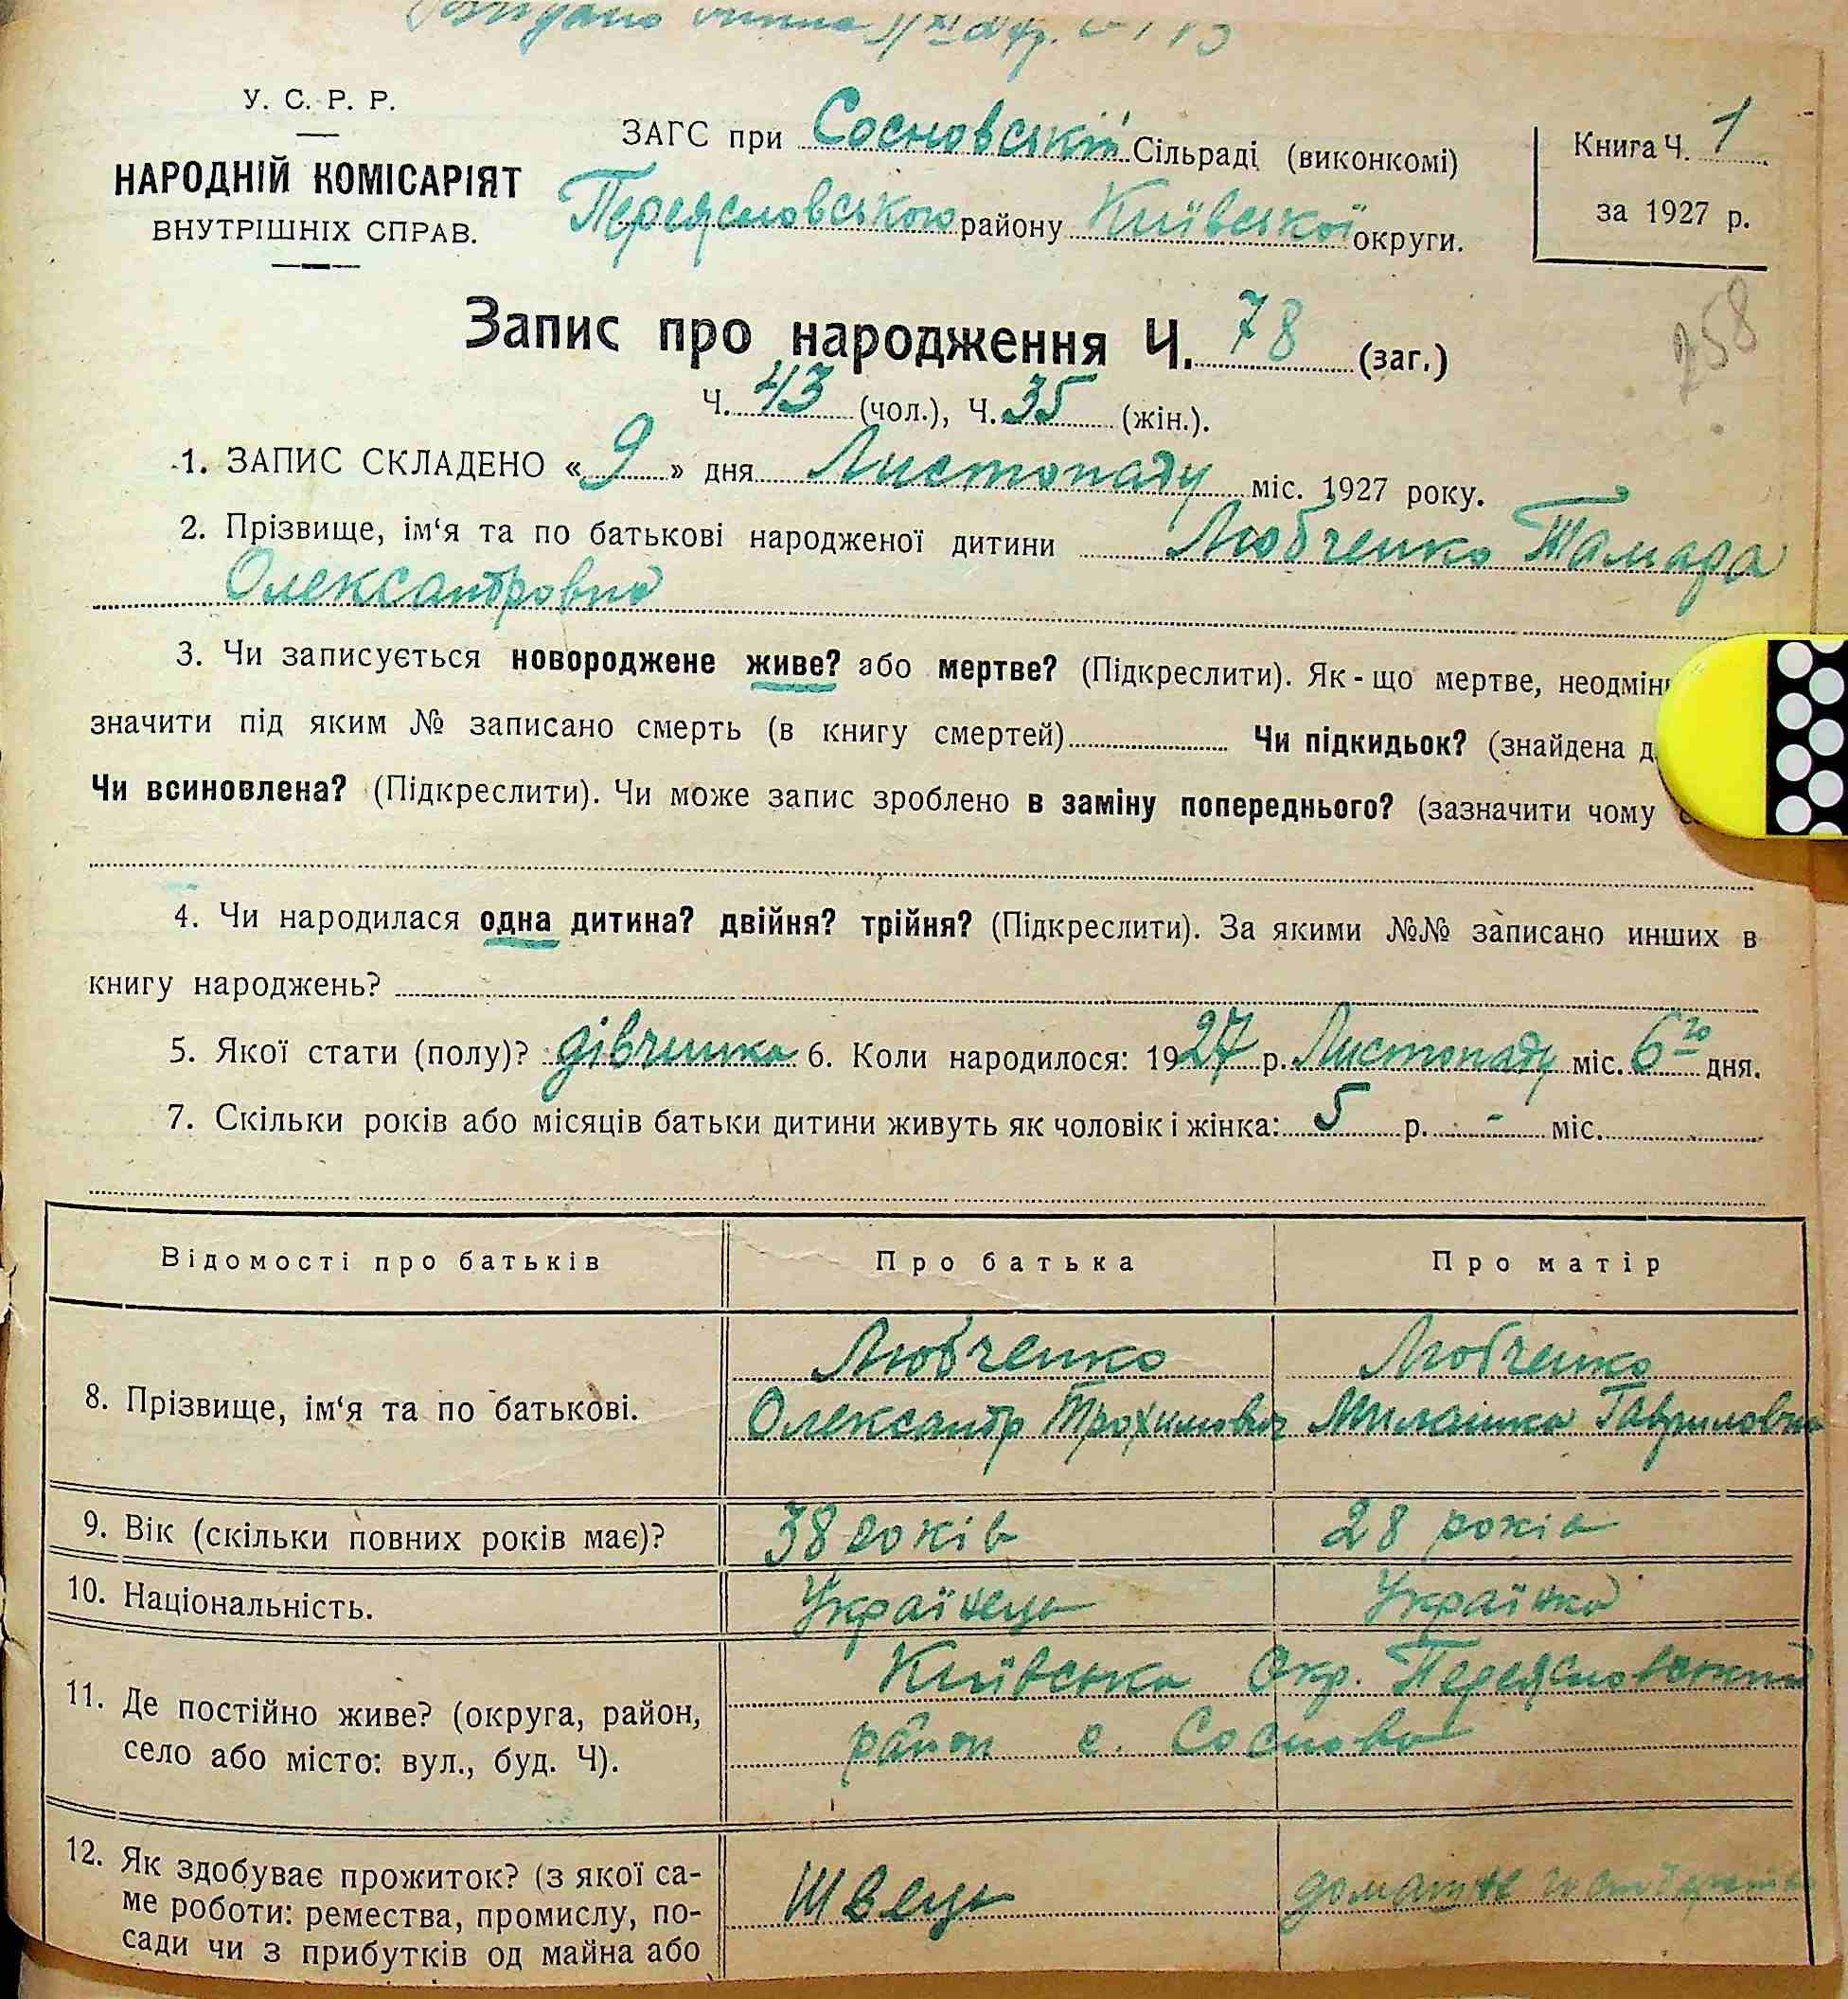 У. С. Р. Р.
НАРОДНІЙ КОМІСАРІЯТ
ВНУТРІШНІХ СПРАВ.
ЗАГС при Сосновській Сільраді (виконкомі)
Переясловського району Київської округи.
Книга Ч. 1
за 1927 р.
258
Запис про народження Ч. 78 (заг.)
Ч. 43 (чол.), Ч. 35 (жін.).
1. ЗАПИС СКЛАДЕНО « 9 » дня Листопаду міс. 1927 року.
2. Прізвище, ім‘я та по батькові народженої дитини Любченко Тамара
Олександровна
3. Чи записується новороджене живе? або мертве? (Підкреслити). Як-що мертве,
значити під яким № записано смерть (в книгу смертей) Чи підкидьок? (знайдена
Чи всиновлена? (Підкреслити). Чи може запис зроблено в заміну попереднього? (зазначити чому
4. Чи народилася одна дитина? двійня? трійня? (Підкреслити). За якими №№ записано инших в
книгу народжень?
5. Якої стати (полу)? дівчинка 6. Коли народилося: 1927 р. Листопаду міс. 6го дня.
7. Скільки років або місяців батьки дитини живуть як чоловік і жінка: 5 р. - міс.
Відомості про батьків Про батька Про матір
Любченко Любченко
8. Прізвище, ім‘я та по батькові. Олександр Трохимович Милашка Гавриловна
9. Вік (скільки повних років має)? 38 років 28 років
10. Національність. Українець Українка
Київська Окр. Переясловський
11. Де постійно живе? (округа, район,
район с. Соснова
село або місто: вул., буд. Ч).
12. Як здобуває прожиток? (з якої са-
ме роботи: ремества, промислу, по- Швець домашнє
сади чи з прибутків од майна або